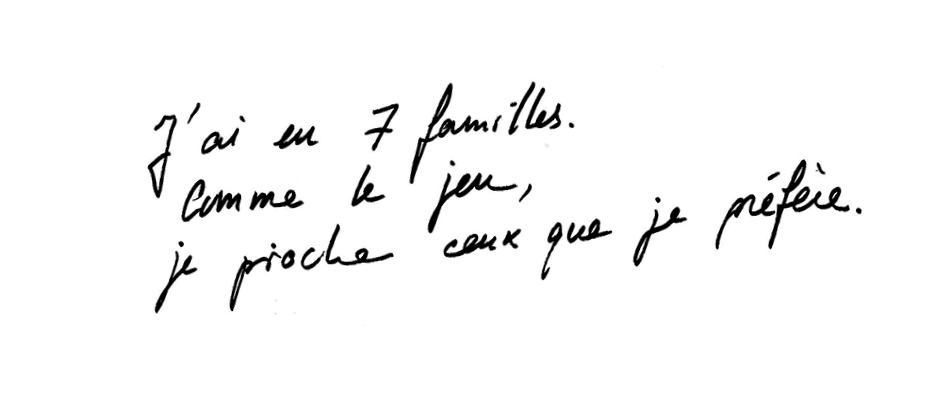 J'ai eu 7 familles.
Comme le jeu,
je pioche ceux que je préfère.